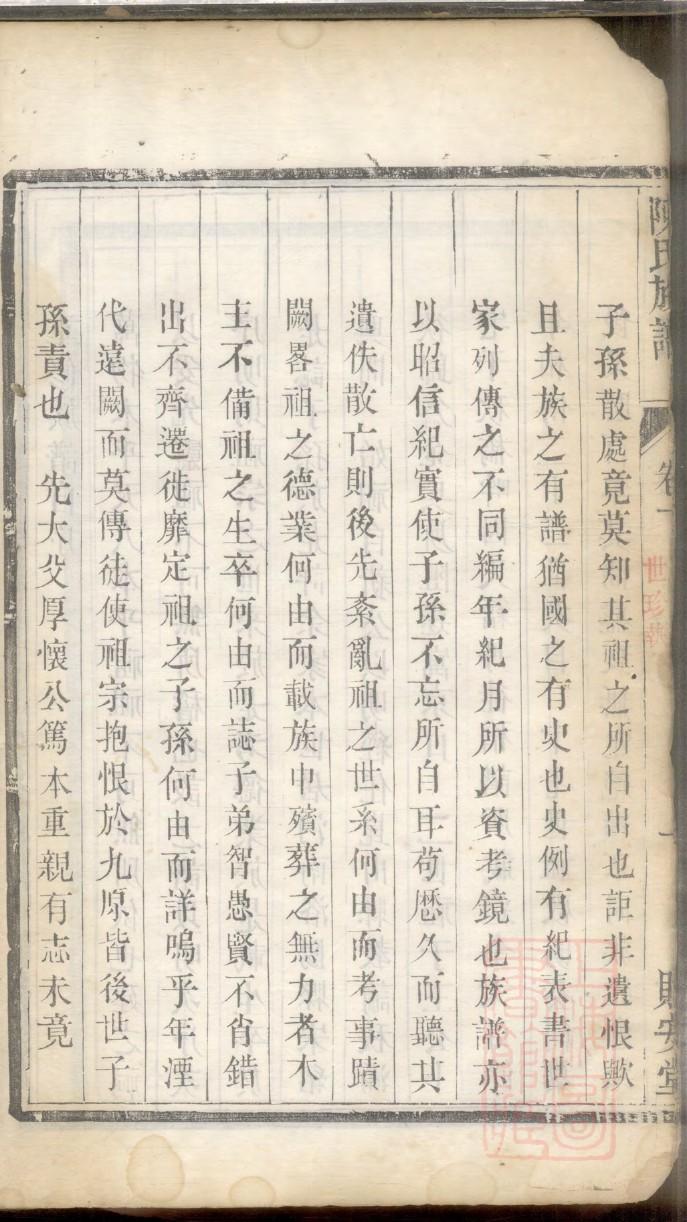 陳氏族譜 卷一 一 貽安堂
世珍藏
子孫散處竟莫知其祖之所自出也詎非遺恨歟
且夫族之有譜猶國之有史也史例有紀表書世
家列傳之不同編年紀月所以資考鏡也族譜亦
以昭信紀實使子孫不忘所自耳苟歷久而聽其
遺佚散亡則後先紊亂祖之世系何由而考事蹟
闕畧祖之德業何由而載族中殯葬之無力者木
主不備祖之生卒何由而誌子弟智愚賢不肖錯
出不齊遷徙靡定祖之子孫何由而詳嗚乎年湮
代遠闕而莫傳徒使祖宗抱恨於九原皆後世子
孫責也　先大父厚懷公篤本重親有志未竟